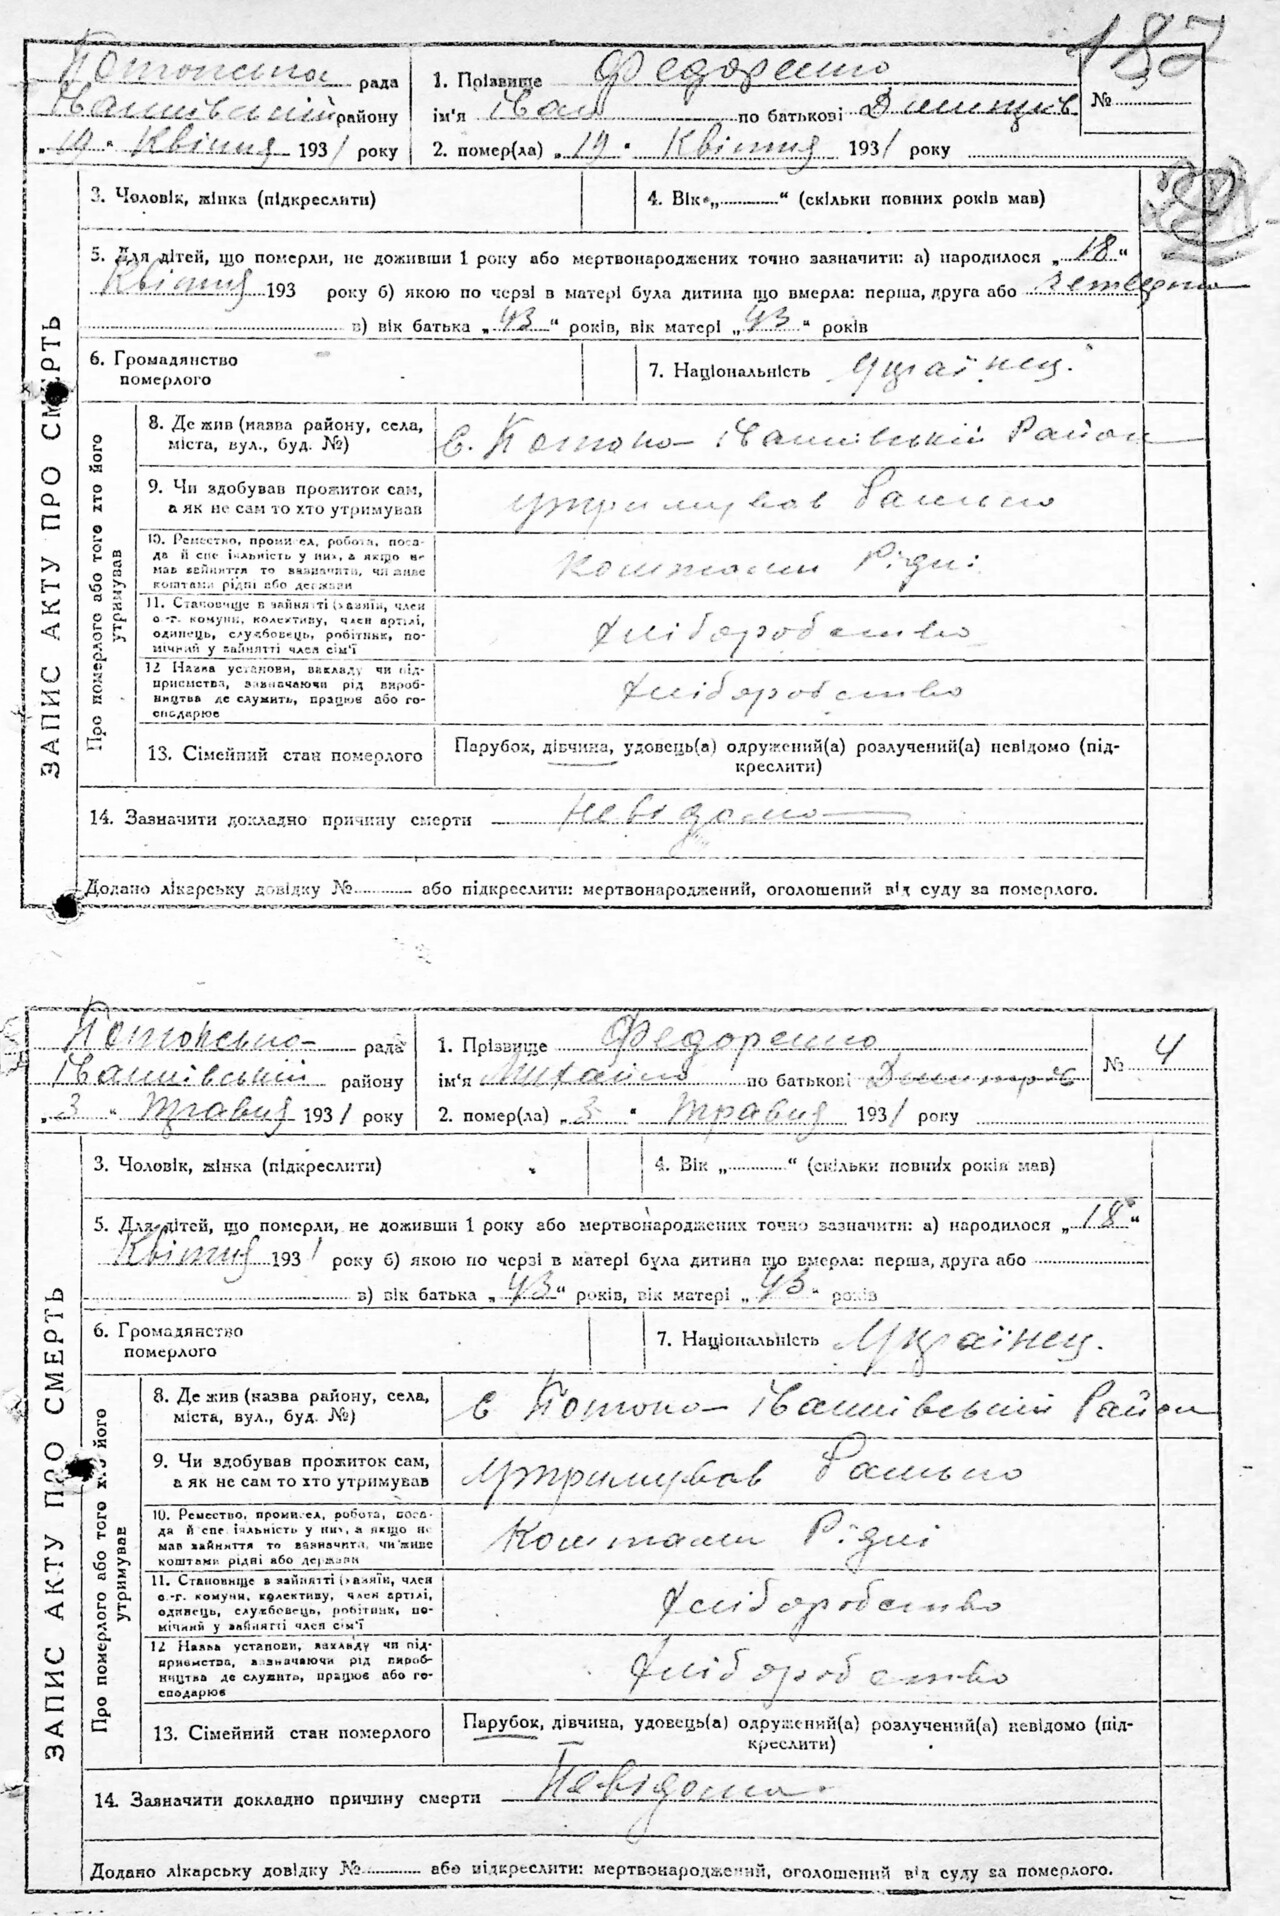 187
Потопська рада
Іванківський району
„19“ Квітня 1931 року
1. Прізвище Федоренко
ім'я Іван по батькові Дмитрів
№
2. помер(ла) „19“ Квітня 1931 року
ЗАПИС АКТУ ПРО СМЕРТЬ
3. Чоловік, жінка (підкреслити)
4. Вік „ “ (скільки повних років мав)
5. Для дітей, що померли, не доживши 1 року або мертвонароджених точно зазначити: а) народилося „18“
Квітня 193 року б) якою по черзі в матері була дитина що вмерла: перша, друга або четверта
в) вік батька „43“ років, вік матері „43“ років
6. Громадянство
померлого
7. Національність Українец.
Про померлого або того хто його
утримував
8. Де жив (назва району, села,
міста, вул., буд. №)
с. Потоки Іванківський Район
9. Чи здобував прожиток сам,
а як не сам то хто утримував
утримував Батько
10. Ремество, промисел, робота, поса-
да й спеціяльність у них, а якщо не
мав зайняття то зазначити, чи живе
коштами рідні або держави
коштами Рідні
11. Становище в зайнятті (хазяїн, член
с.-г. комуни, колективу, член артілі,
одинець, службовець, робітник, по-
мічний у зайнятті член сім'ї
Хліборобство
12 Назва установи, закладу чи під-
приємства, зазначаючи рід вироб-
ництва де служить, працює або го-
сподарює
Хліборобство
13. Сімейний стан померлого
Парубок, дівчина, удовець(а) одружений(а) розлучений(а) невідомо (під-
креслити)
14. Зазначити докладно причину смерти невідомо
Додано лікарську довідку № або підкреслити: мертвонароджений, оголошений від суду за померлого.
Потопська рада
Іванківський району
„3“ Травня 1931 року
1. Прізвище Федоренко
ім'я Михайло по батькові Дмитрів
№ 4
2. помер(ла) „3“ Травня 1931 року
ЗАПИС АКТУ ПРО СМЕРТЬ
3. Чоловік, жінка (підкреслити)
4. Вік „ “ (скільки повних років мав)
5. Для дітей, що померли, не доживши 1 року або мертвонароджених точно зазначити: а) народилося „18“
Квітня 1931 року б) якою по черзі в матері була дитина що вмерла: перша, друга або
в) вік батька „43“ років, вік матері „43“ років
6. Громадянство
померлого
7. Національність Українец.
Про померлого або того хто його
утримував
8. Де жив (назва району, села,
міста, вул., буд. №)
с Потоки Іванківський Район
9. Чи здобував прожиток сам,
а як не сам то хто утримував
Утримував Батько
10. Ремество, промисел, робота, поса-
да й спеціяльність у них, а якщо не
мав зайняття то зазначити, чи живе
коштами рідні або держави
Коштами Рідні
11. Становище в зайнятті (хазяїн, член
с.-г. комуни, колективу, член артілі,
одинець, службовець, робітник, по-
мічний у зайнятті член сім'ї
Хліборобство
12 Назва установи, закладу чи під-
приємства, зазначаючи рід вироб-
ництва де служить, працює або го-
сподарює
Хліборобство
13. Сімейний стан померлого
Парубок, дівчина, удовець(а) одружений(а) розлучений(а) невідомо (під-
креслити)
14. Зазначити докладно причину смерти Невідома
Додано лікарську довідку № або підкреслити: мертвонароджений, оголошений від суду за померлого.